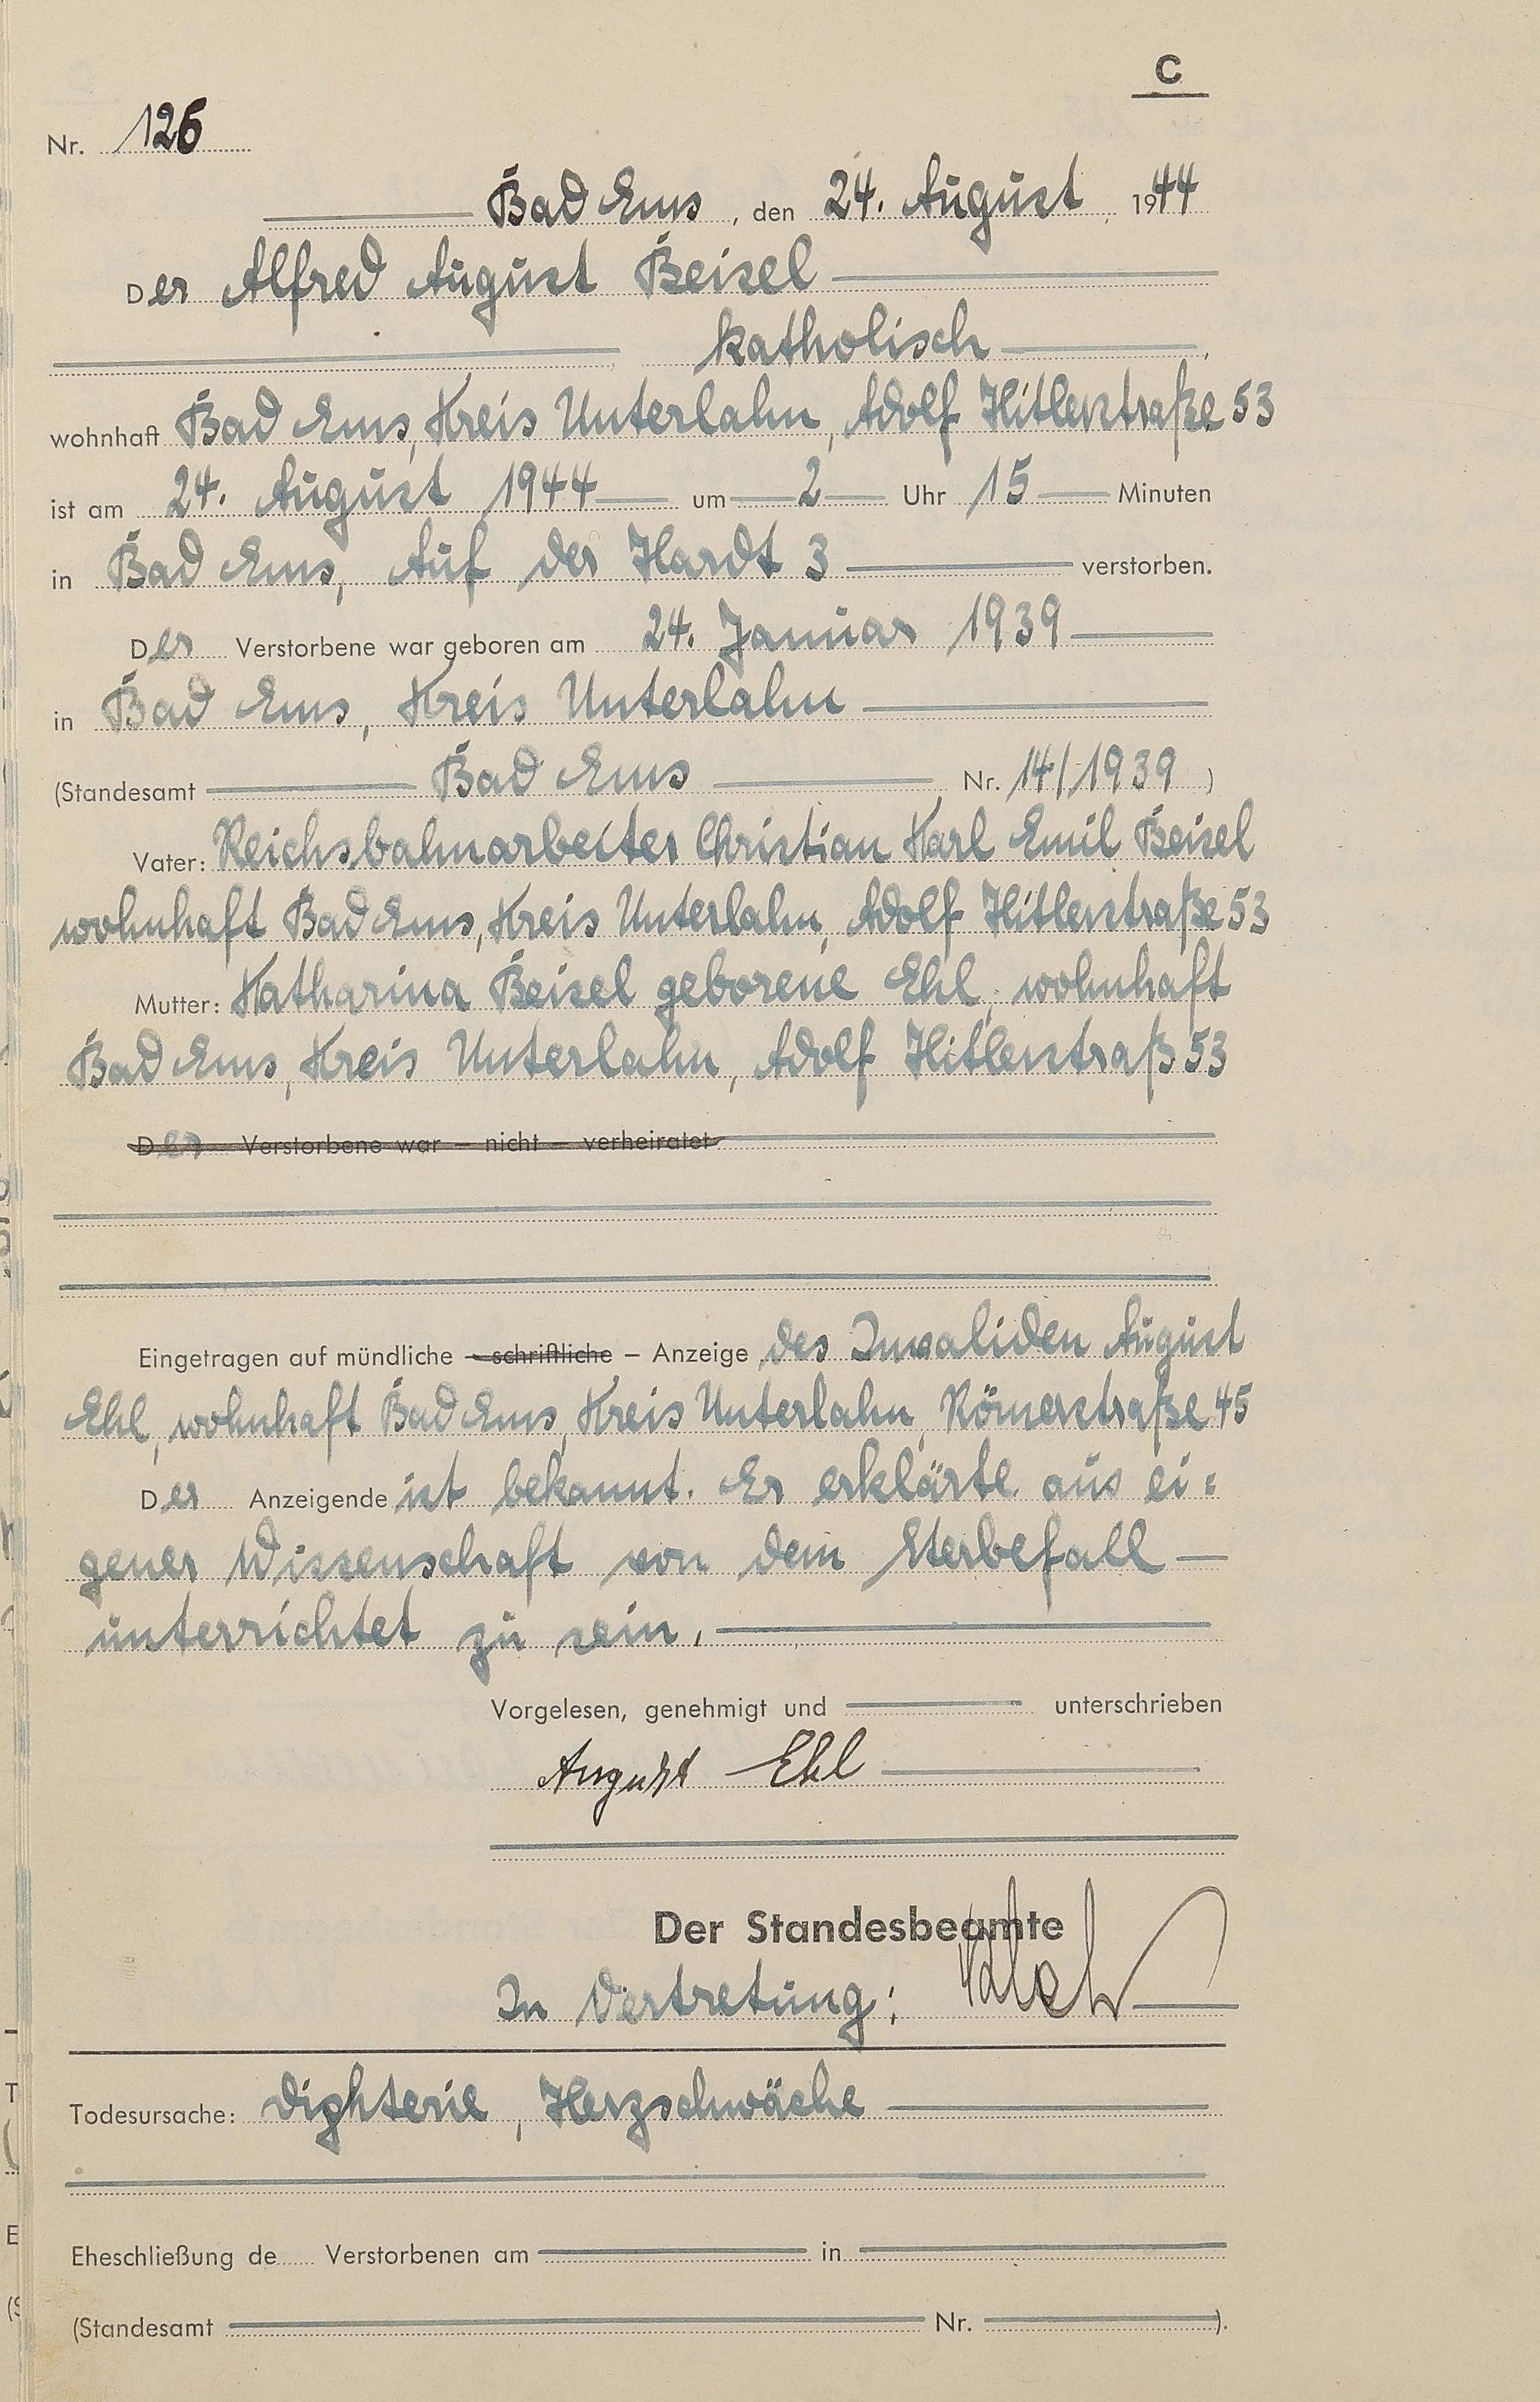 C
Nr. 126
Bad Ems, den 24. August, 1944
Der Alfred August Beisel
katholisch,
wohnhaft Bad Ems, Kreis Unterlahn, Adolf Hitlerstraße 53
ist am 24. August 1944 um 2 Uhr 15 Minuten
in Bad Ems, Auf der Hardt 3 verstorben.
Der Verstorbene war geboren am 24. Januar 1939
in Bad Ems, Kreis Unterlahn
(Standesamt Bad Ems Nr. 14/1939)
Vater: Reichsbahnarbeiter Christian Karl Emil Beisel
wohnhaft Bad Ems, Kreis Unterlahn, Adolf Hitlerstraße 53
Mutter: Katharina Beisel geborene Ehl, wohnhaft
Bad Ems, Kreis Unterlahn, Adolf Hitlerstraß 53
Der Verstorbene war – nicht – verheiratet
Eingetragen auf mündliche – schriftliche – Anzeige des Invaliden August
Ehl, wohnhaft Bad Ems, Kreis Unterlahn, Römerstraße 45
Der Anzeigende ist bekannt. Er erklärte aus ei=
gener Wissenschaft von dem Sterbefall
unterrichtet zu sein.
Vorgelesen, genehmigt und unterschrieben
August Ehl
Der Standesbeamte
In Vertretung:
Todesursache: Dighterie, Herzschwäche
Eheschließung de Verstorbenen am in
(Standesamt Nr. ).